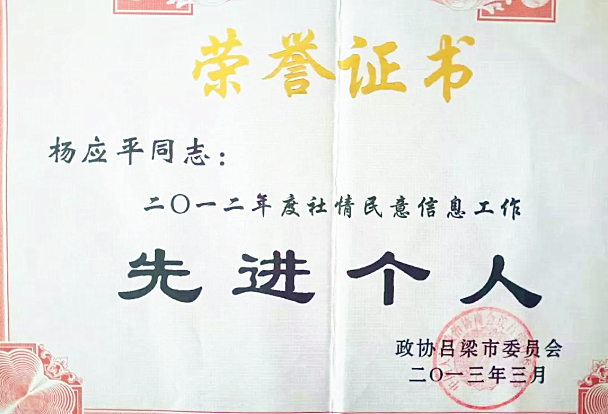 荣誉证书
杨应平同志：
二〇一二年度社情民意信息工作
先进个人
政协吕梁市委员会
二〇一三年三月